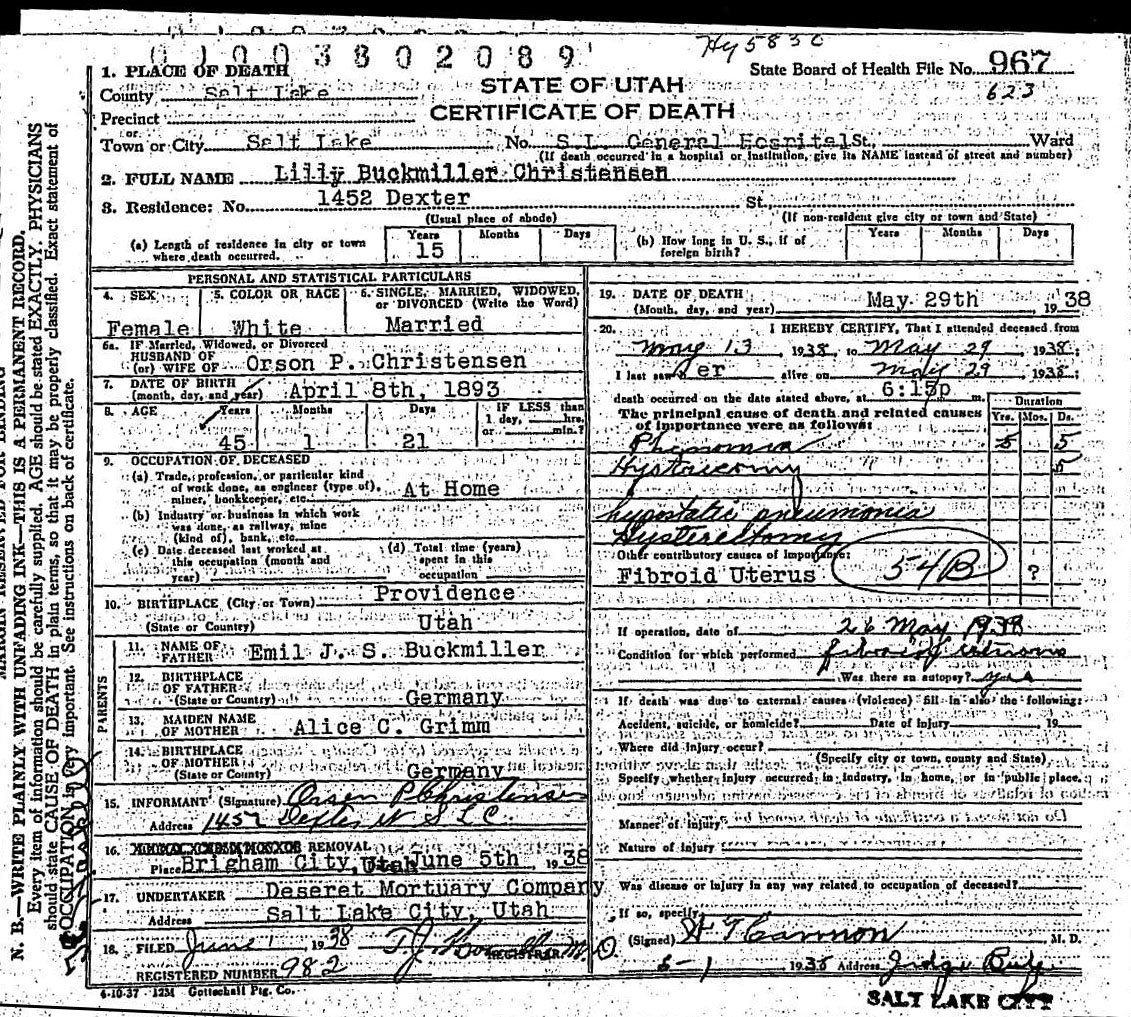 0 1 0 0 3 8 0 2 0 8 9
Hy 5830
State Board of Health File No. 967
623
STATE OF UTAH
CERTIFICATE OF DEATH
1. PLACE OF DEATH
County Salt Lake
Precinct
or
Town or City Salt Lake No. S.L. General Hospital St., Ward
(If death occurred in a hospital or institution, give its NAME instead of street and number)
2. FULL NAME Lilly Buckmiller Christensen
3. Residence: No. 1452 Dexter St.
(Usual place of abode) (If non-resident give city or town and State)
(a) Length of residence in city or town where death occurred. Years 15 Months Days
(b) How long in U. S., if of foreign birth? Years Months Days
PERSONAL AND STATISTICAL PARTICULARS
4. SEX Female
5. COLOR OR RACE White
6. SINGLE, MARRIED, WIDOWED, or DIVORCED (Write the Word) Married
6a. IF Married, Widowed, or Divorced
HUSBAND OF
(or) WIFE OF Orson P. Christensen
7. DATE OF BIRTH
(month, day, and year) April 8th, 1893
8. AGE Years 45 Months 1 Days 21
IF LESS than 1 day, hrs. or min.?
9. OCCUPATION OF DECEASED
(a) Trade, profession, or particular kind of work done, as engineer (type of), miner, bookkeeper, etc. At Home
(b) Industry or business in which work was done, as railway, mine (kind of), bank, etc.
(c) Date deceased last worked at this occupation (month and year)
(d) Total time (years) spent in this occupation
10. BIRTHPLACE (City or Town) Providence
(State or Country) Utah
PARENTS
11. NAME OF FATHER Emil J. S. Buckmiller
12. BIRTHPLACE OF FATHER
(State or Country) Germany
13. MAIDEN NAME OF MOTHER Alice C. Grimm
14. BIRTHPLACE OF MOTHER
(State or Country) Germany
15. INFORMANT (Signature) Orson P Christensen
Address 1452 Dexter St S L C
16. REMOVAL
Place Brigham City, Utah June 5th, 1938
17. UNDERTAKER Deseret Mortuary Company
Address Salt Lake City, Utah
18. FILED June 1 1938 T. J. M. D.
REGISTRAR
REGISTERED NUMBER 982
4-10-37 12M Gottschall Ptg. Co.
19. DATE OF DEATH
(Month, day, and year) May 29th 1938
20. I HEREBY CERTIFY, That I attended deceased from
May 13 1938, to May 29, 1938;
I last saw her alive on May 29 1938;
death occurred on the date stated above, at 6:15p m.
The principal cause of death and related causes of importance were as follows:
Duration
Yrs. Mos. Ds.
5 5
5
hypostatic pneumonia
Hysterectomy
Other contributory causes of importance:
Fibroid Uterus 54B ?
If operation, date of 26 May 1938
Condition for which performed fibroid uterus
Was there an autopsy? yes
If death was due to external causes (violence) fill in also the following:
Accident, suicide, or homicide? Date of injury 19
Where did injury occur?
(Specify city or town, county and State)
Specify whether injury occurred in industry, in home, or in public place.
Manner of injury
Nature of injury
Was disease or injury in any way related to occupation of deceased?
If so, specify
(Signed) H T Cannon M. D.
6-1 1938 Address Judge Bldg
SALT LAKE CITY
MARGIN RESERVED FOR BINDING
N. B.—WRITE PLAINLY WITH UNFADING INK—THIS IS A PERMANENT RECORD.
Every item of information should be carefully supplied. AGE should be stated EXACTLY. PHYSICIANS
should state CAUSE OF DEATH in plain terms, so that it may be properly classified. Exact statement of
OCCUPATION is very important. See instructions on back of certificate.